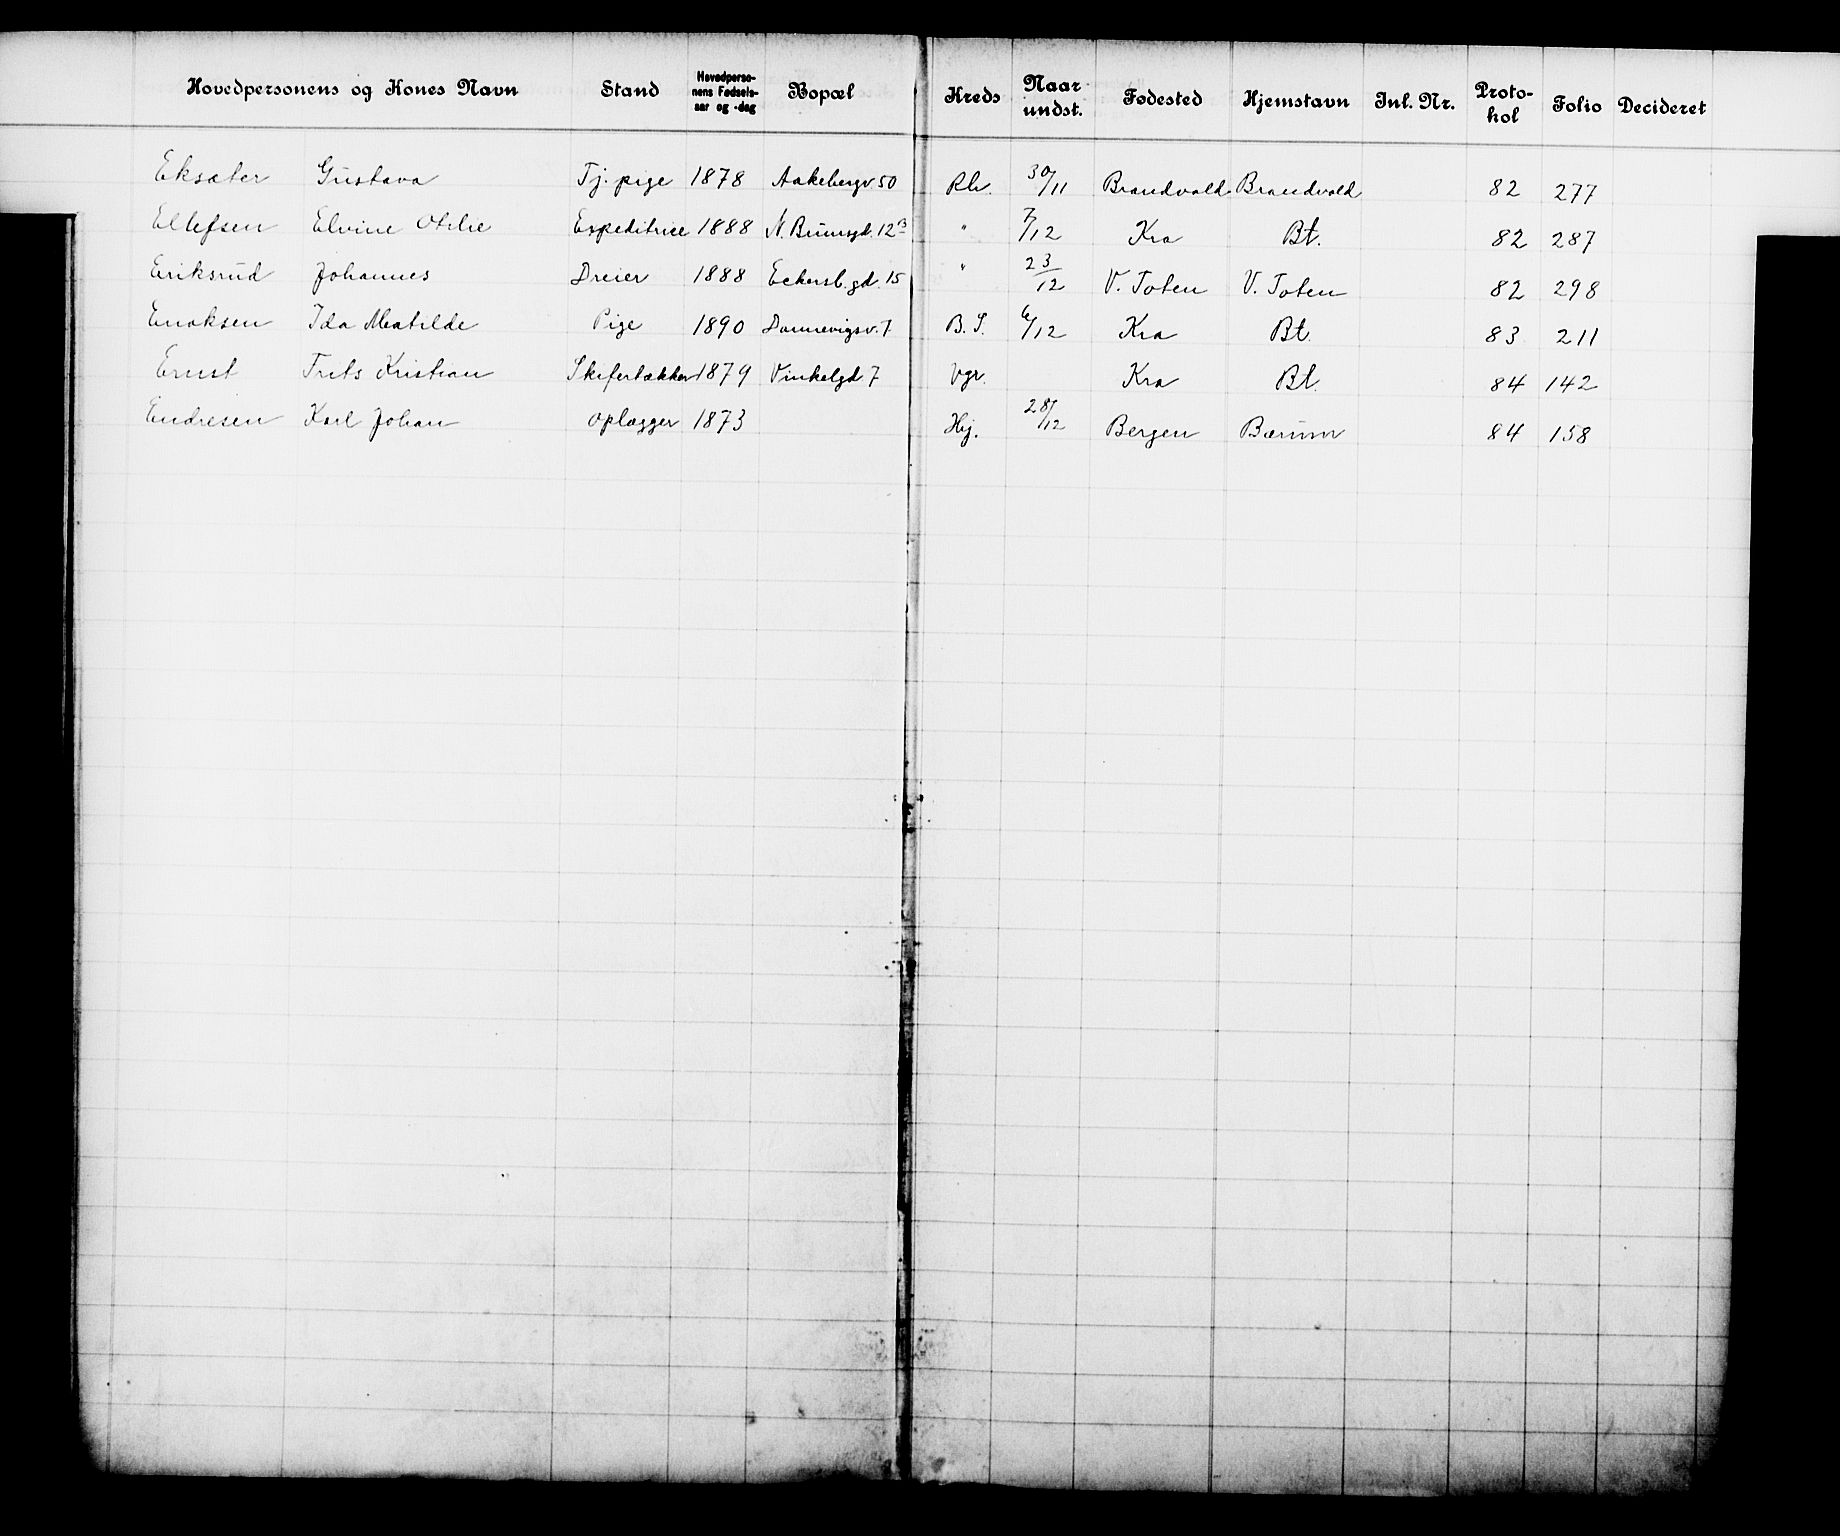 Hovedpersonens og Kones Navn Stand Hovedpersonens Fødselsaar og -dag Bopæl Kreds Naar undst. Fødested Hjemstavn Inl. Nr. Protokol Folio Decideret
Eksæter Gustava Tj. pige 1878 Aakebergv. 50 Rh. 30/11 Brandvold Brandvold 82 277
Ellefsen Elvine Otilie Expeditrice 1888 N. Brunsgd. 12 B " 7/12 Kra Bt. 82 287
Eriksrud Johannes Dreier 1888 Eckersb. gd. 15 " 23/12 V. Toten V. Toten 82 298
Enoksen Ida Matilde Pige 1890 Dannevigsv. 7 B. S. 6/12 Kra Bt. 83 211
Ernst Frits Kristian Skifertækker 1879 Vinkelgd 7 Vgr. Kra Bt. 84 142
Endresen Karl Johan Oplægger 1873 Hj. 28/12 Bergen Bærum 84 158